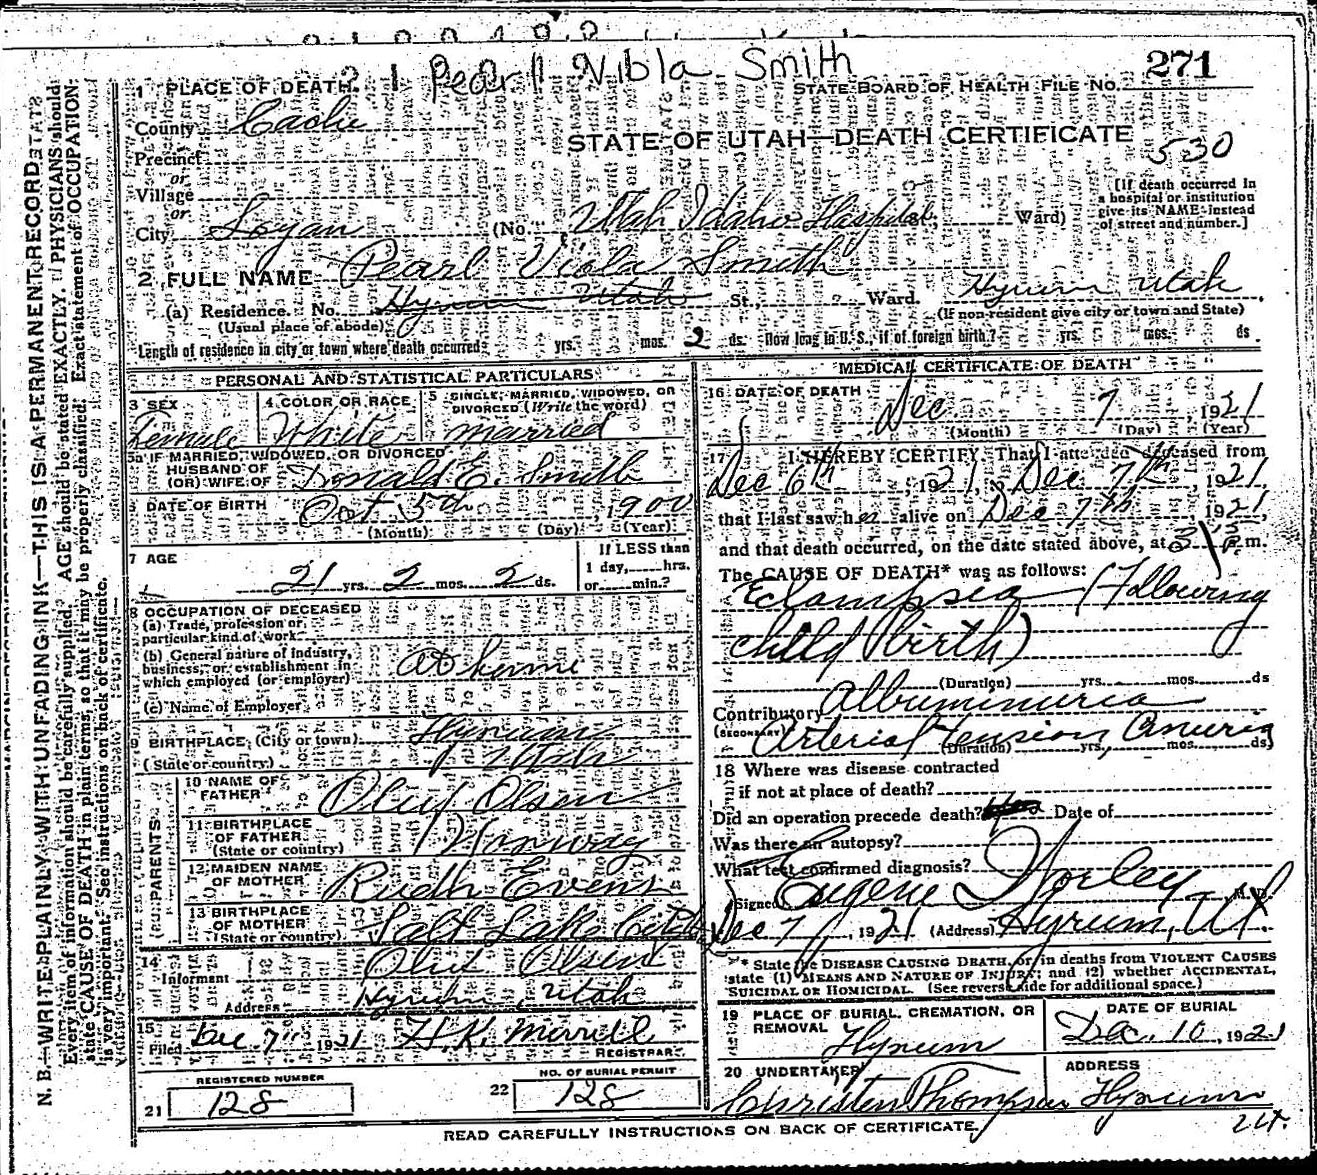 Pearl Viola Smith
271
1 PLACE OF DEATH.
STATE BOARD OF HEALTH FILE NO.
County Cache
STATE OF UTAH—DEATH CERTIFICATE
530
Precinct
or
Village
or
[If death occurred in a hospital or institution give its NAME instead of street and number.]
City Logan (No. Utah Idaho Hospital Ward)
2 FULL NAME Pearl Viola Smith
(a) Residence. No. Hyrum Utah St., Ward. Hyrum Utah
(Usual place of abode) (If non-resident give city or town and State)
Length of residence in city or town where death occurred yrs. mos. 2 ds. How long in U. S., if of foreign birth? yrs. mos. ds.
PERSONAL AND STATISTICAL PARTICULARS
3 SEX
Female
4 COLOR OR RACE
White
5 SINGLE, MARRIED, WIDOWED, OR DIVORCED (Write the word)
married
5a IF MARRIED, WIDOWED, OR DIVORCED
HUSBAND OF
(OR) WIFE OF Donald E. Smith
DATE OF BIRTH Oct 5th 1900
(Month) (Day) (Year)
7 AGE
21 yrs. 2 mos. 2 ds.
If LESS than
1 day, hrs.
or min.?
8 OCCUPATION OF DECEASED
(a) Trade, profession or
particular kind of work
(b) General nature of industry,
business, or establishment in
which employed (or employer) at home
(c) Name of Employer
9 BIRTHPLACE (City or town) Hyrum
(State or country) Utah
PARENTS
10 NAME OF
FATHER Oluf Olsen
11 BIRTHPLACE
OF FATHER
(State or country) Norway
12 MAIDEN NAME
OF MOTHER Ruth Evens
13 BIRTHPLACE
OF MOTHER
(State or country) Salt Lake City
14
Informant Oluf Olsen
Address Hyrum, Utah
15
Filed Dec 7th 1921 H. K. Merrill
REGISTRAR
REGISTERED NUMBER
21 128
NO. OF BURIAL PERMIT
22 128
MEDICAL CERTIFICATE OF DEATH
16 DATE OF DEATH
Dec 7, 1921
(Month) (Day) (Year)
17 I HEREBY CERTIFY, That I attended deceased from
Dec 6th, 1921, Dec 7th, 1921,
that I last saw her alive on Dec 7th 1921,
and that death occurred, on the date stated above, at m.
The CAUSE OF DEATH* was as follows:
Eclampsia (Following
child birth)
(Duration) yrs. mos. ds
Contributory Albuminuria
(SECONDARY) Arterial Tension, Anuria
(Duration) yrs, mos. ds,
18 Where was disease contracted
if not at place of death?
Did an operation precede death? Date of
Was there an autopsy?
What test confirmed diagnosis?
Signed Eugene Worley M. D.
Dec 7, 1921 (Address) Hyrum, Ut.
* State the DISEASE CAUSING DEATH, or in deaths from VIOLENT CAUSES
state (1) MEANS AND NATURE OF INJURY; and (2) whether ACCIDENTAL,
SUICIDAL OR HOMICIDAL. (See reverse side for additional space.)
19 PLACE OF BURIAL, CREMATION, OR
REMOVAL Hyrum
DATE OF BURIAL
Dec. 10, 1921
20 UNDERTAKER
Christen Thompson
ADDRESS
Hyrum
Ut.
READ CAREFULLY INSTRUCTIONS ON BACK OF CERTIFICATE.
N. B.—WRITE PLAINLY WITH UNFADING INK—THIS IS A PERMANENT RECORD
Every item of information should be carefully supplied. AGE should be stated EXACTLY. PHYSICIANS should
state CAUSE OF DEATH in plain terms, so that it may be properly classified. Exact statement of OCCUPATION
is very important. See instructions on back of certificate.